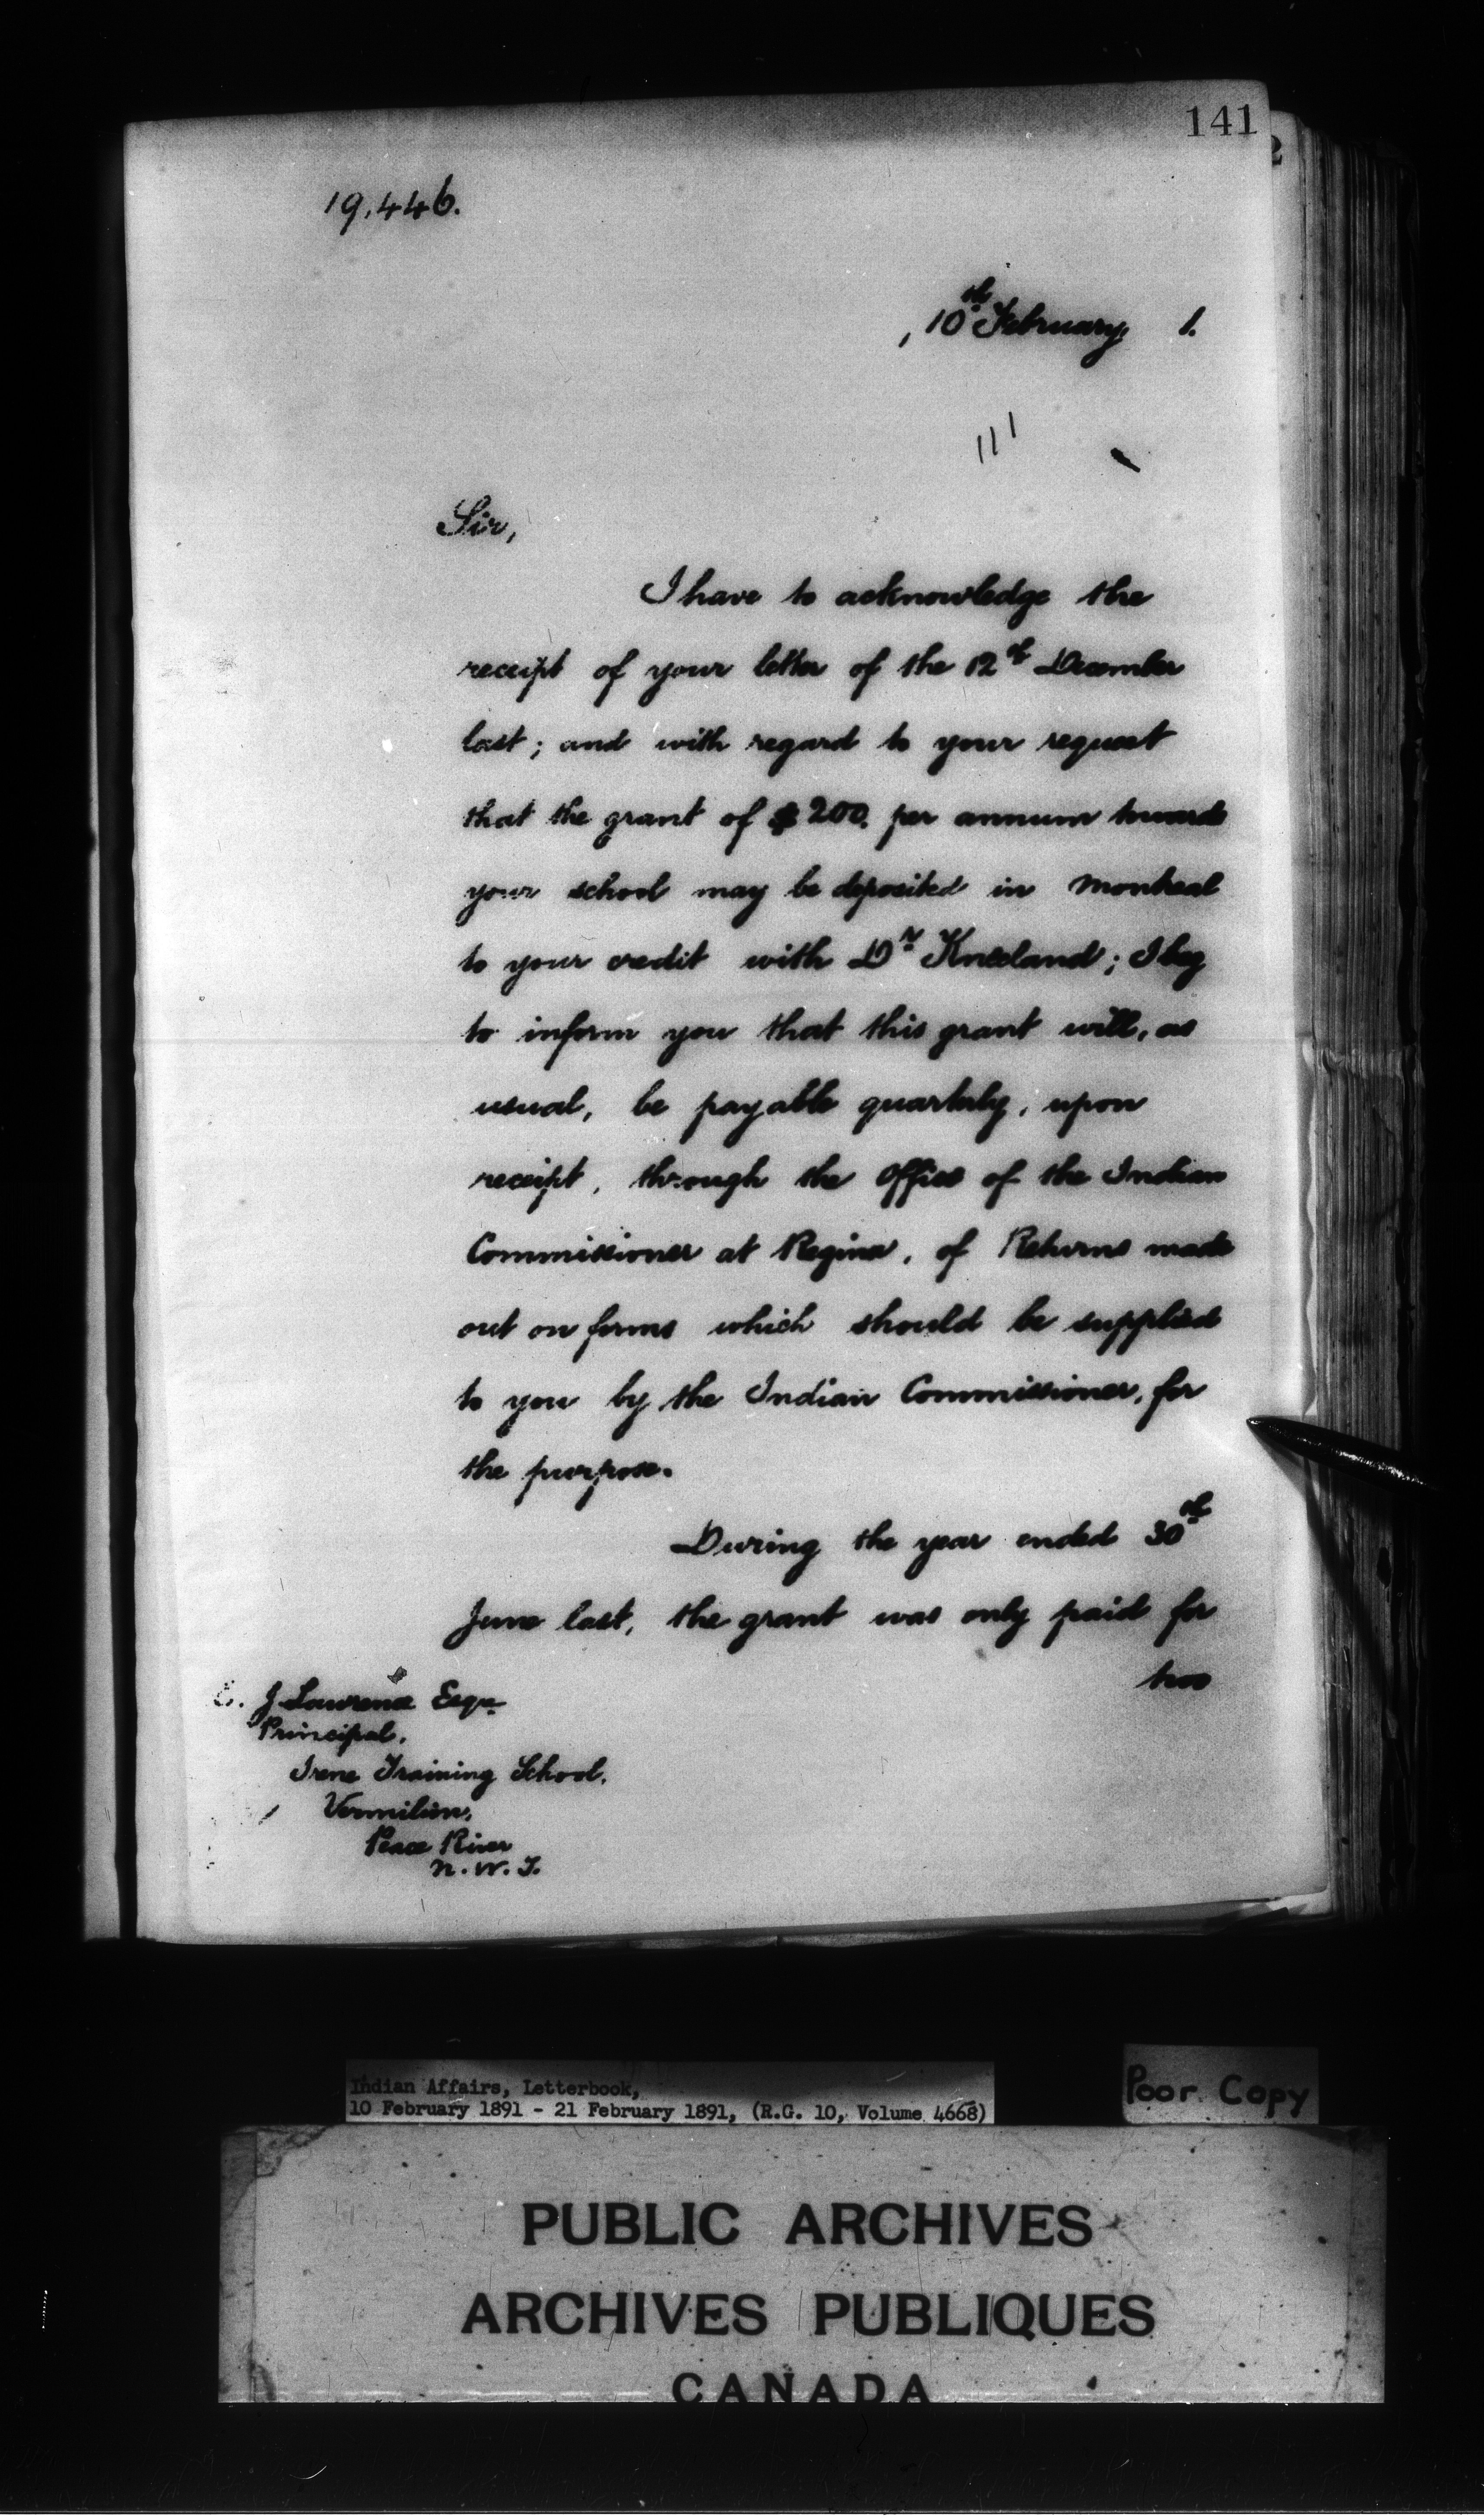 141
19,446.
10th February, 1.
Sir,
I have to acknowledge the
receipt of your letter of the 12th December
last; and with regard to your request
that the grant of $200. per annum towards
your school may be deposited in Montreal
to your credit with Dr Kneeland; I beg
to inform you that this grant will, as
usual, be payable quarterly, upon
receipt, through the Office of the Indian
Commissioner at Regina, of Returns made
out on forms which should be supplied
to you by the Indian Commissioner, for
the purpose.
During the year ended 30th
June last, the grant was only paid for
two
E. J. Lawrence Esqre
Principal,
Irene Training School,
Vermilion,
Peace River
N.W.T.
Indian Affairs, Letterbook,
10 February 1891 - 21 February 1891, (R.G. 10, Volume 4668)
Poor Copy
PUBLIC ARCHIVES
ARCHIVES PUBLIQUES
CANADA